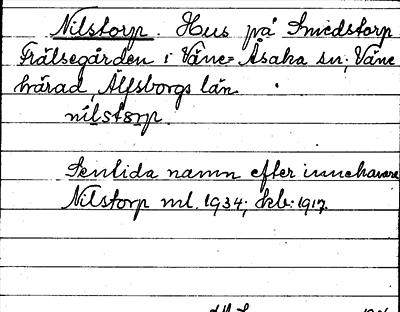 Nilstorp. Hus på Smedstorp
Frälsegården i Väne-Åsaka sn, Väne
härad, Älfsborgs län.
nilstɘrp.
Sentida namn efter innehavare
Nilstorp ml. 1934; kb. 1917